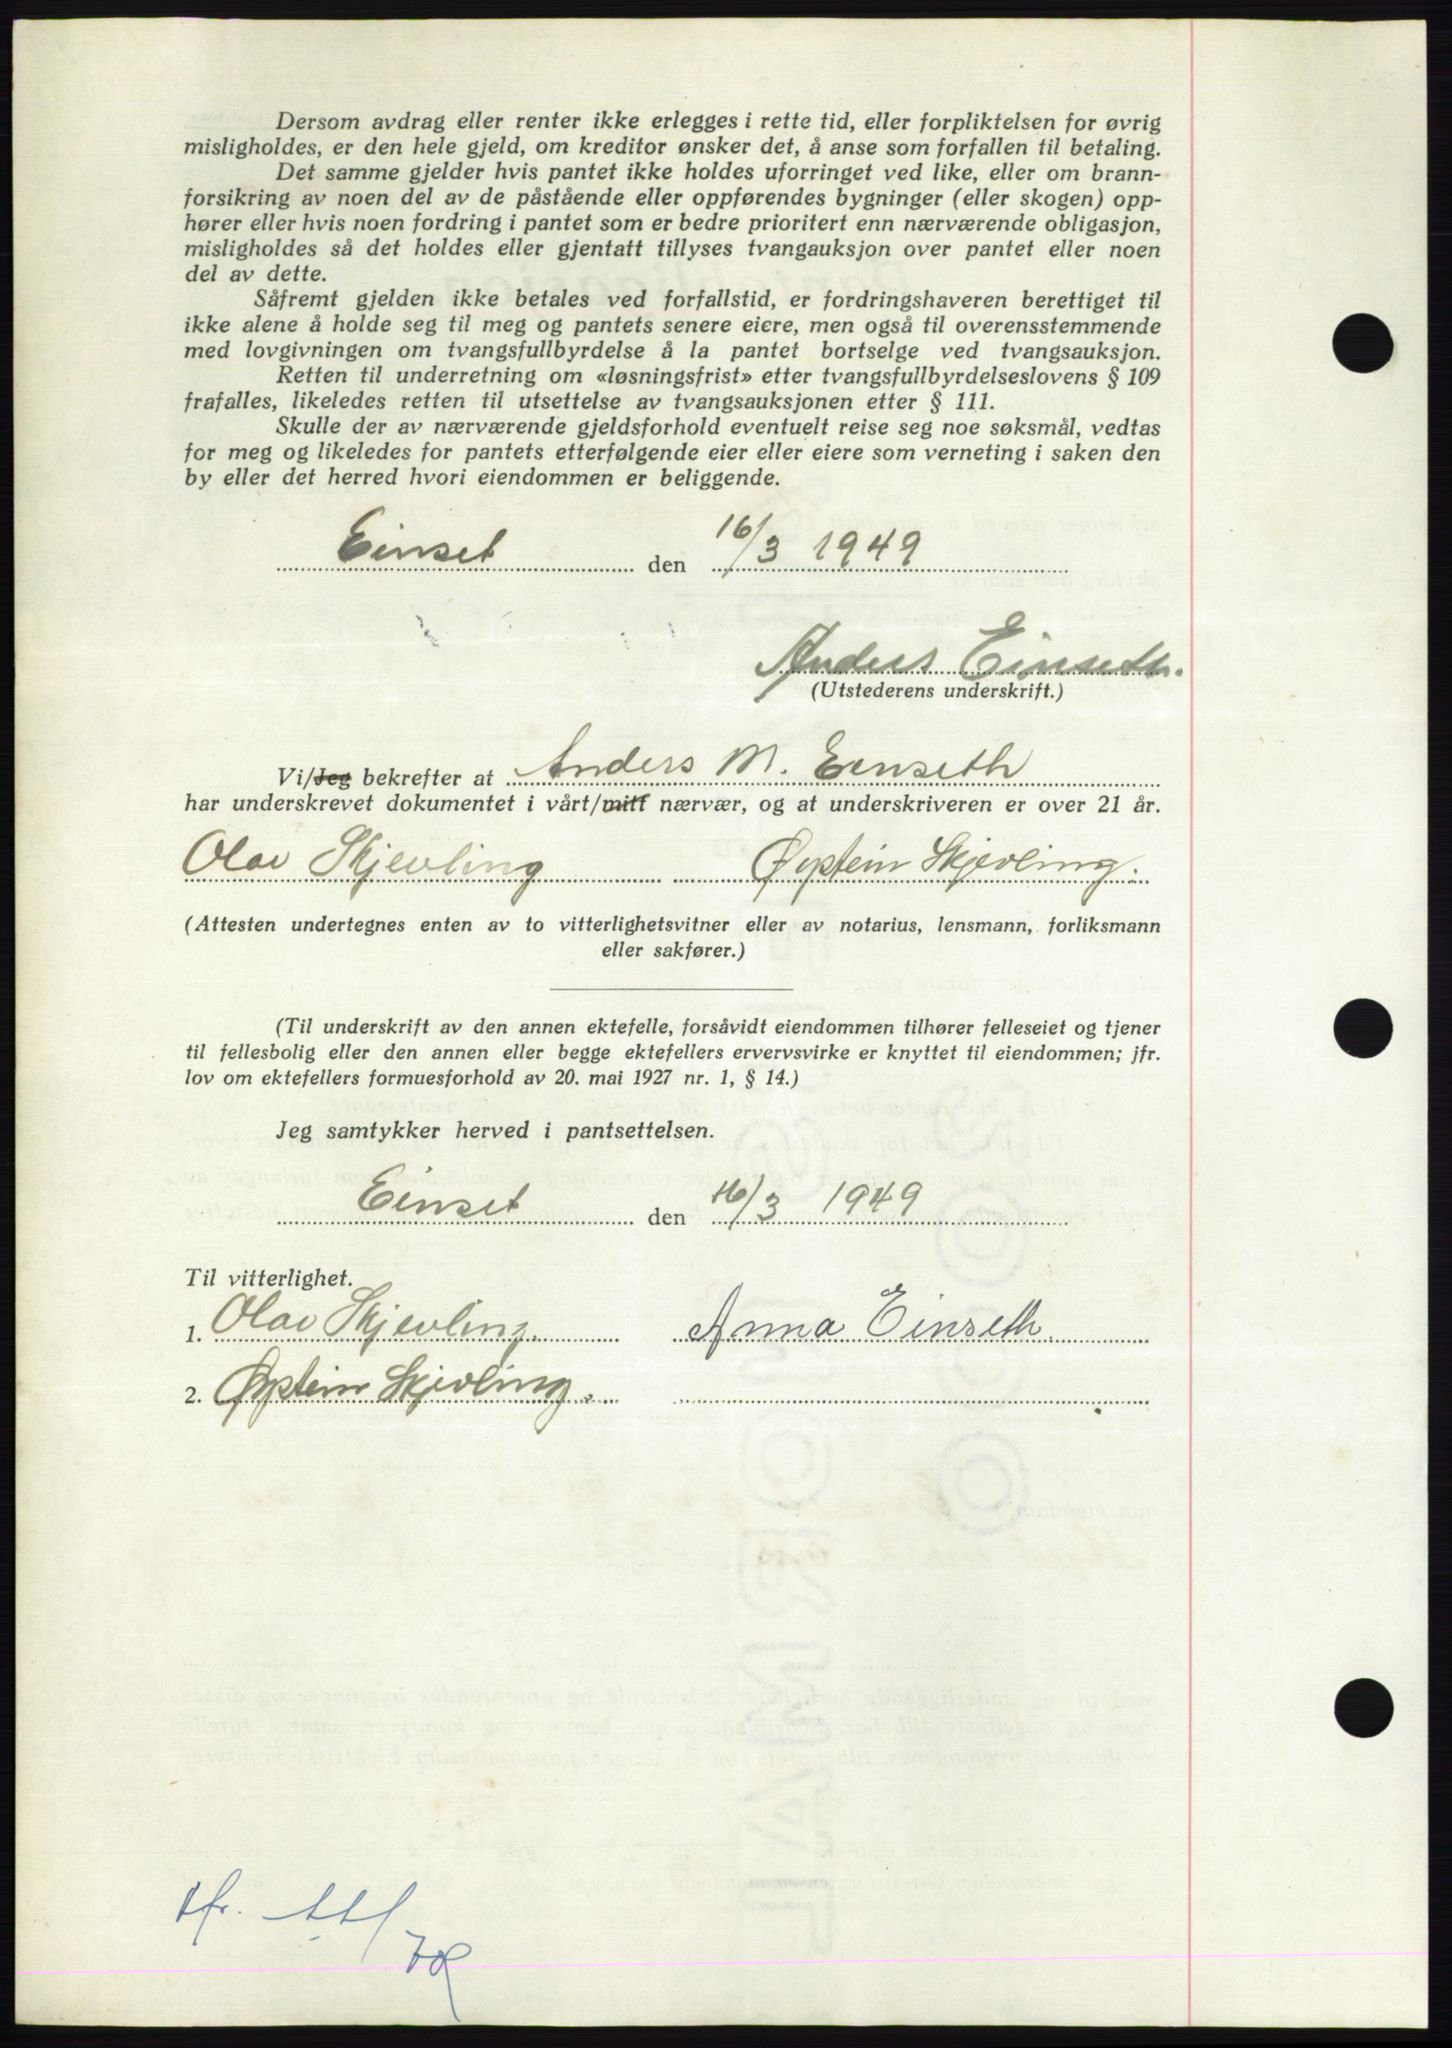 Dersom avdrag eller renter ikke erlegges i rette tid, eller forpliktelsen for øvrig
misligholdes, er den hele gjeld, om kreditor ønsker det, å anse som forfallen til betaling.
Det samme gjelder hvis pantet ikke holdes uforringet ved like, eller om brann-
forsikring av noen del av de påstående eller oppførendes bygninger (eller skogen) opp-
hører eller hvis noen fordring i pantet som er bedre prioritert enn nærværende obligasjon,
misligholdes så det holdes eller gjentatt tillyses tvangauksjon over pantet eller noen
del av dette.
Såfremt gjelden ikke betales ved forfallstid, er fordringshaveren berettiget til
ikke alene å holde seg til meg og pantets senere eiere, men også til overensstemmende
med lovgivningen om tvangsfullbyrdelse å la pantet bortselge ved tvangsauksjon.
Retten til underretning om «løsningsfrist» etter tvangsfullbyrdelseslovens § 109
frafalles, likeledes retten til utsettelse av tvangsauksjonen etter § 111.
Skulle der av nærværende gjeldsforhold eventuelt reise seg noe søksmål, vedtas
for meg og likeledes for pantets etterfølgende eier eller eiere som verneting i saken den
by eller det herred hvori eiendommen er beliggende.
Einset den 16/3 1949
Anders Einseth.
(Utstederens underskrift.)
Vi/Jeg bekrefter at Anders M. Einseth
har underskrevet dokumentet i vårt/mitt nærvær, og at underskriveren er over 21 år.
Olav Skjevling Øystein Skjevling.
(Attesten undertegnes enten av to vitterlighetsvitner eller av notarius, lensmann, forliksmann
eller sakfører.)
(Til underskrift av den annen ektefelle, forsåvidt eiendommen tilhører felleseiet og tjener
til fellesbolig eller den annen eller begge ektefellers ervervsvirke er knyttet til eiendommen; jfr.
lov om ektefellers formuesforhold av 20. mai 1927 nr. 1, § 14.)
Jeg samtykker herved i pantsettelsen.
Einset den 16/3 1949
Til vitterlighet.
1. Olav Skjevling. Anna Einseth.
2. Øystein Skjevling.